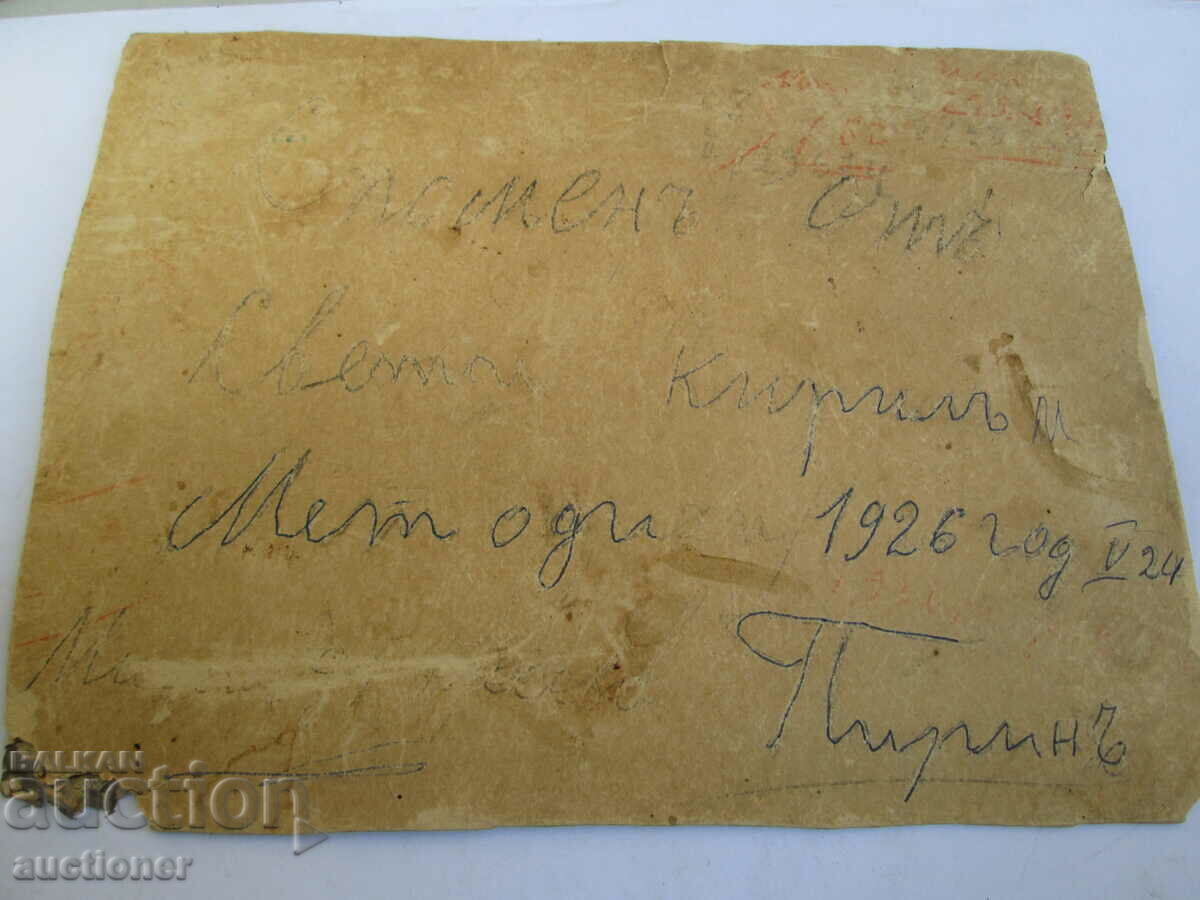 Споменъ Отъ
Свети Кирилъ и
Методи 1926 год V 24
Пиринъ
BALKAN
auction
auctioner